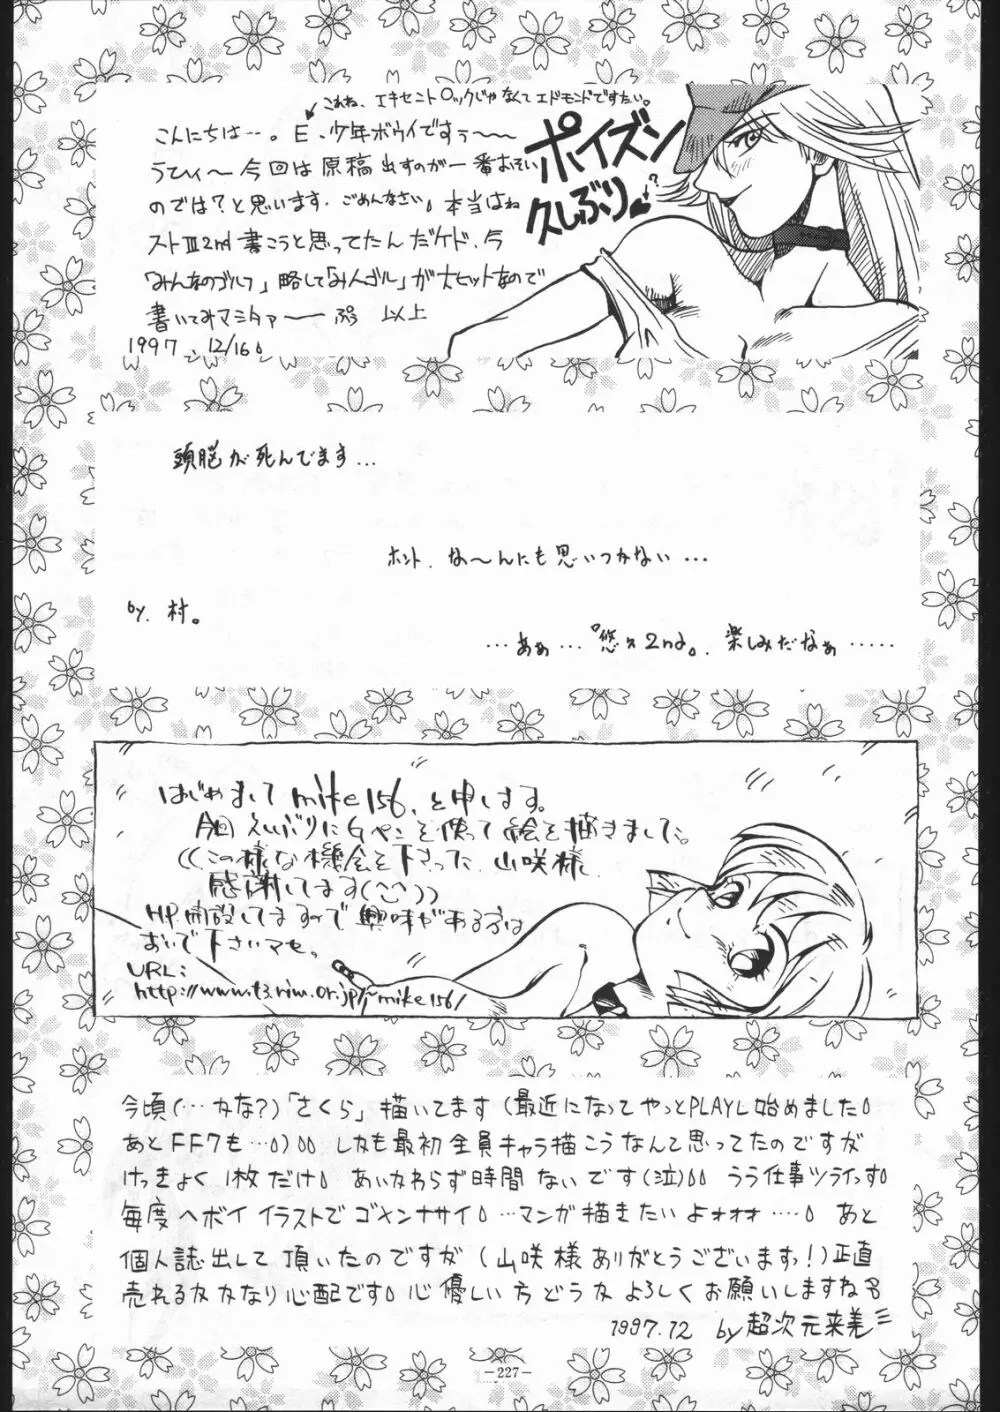 これね、エキセントロックじゃなくてエドモンドですたい。
こんにちは…。E.少年ボウイですぅ〜〜
うてぃ〜今回は原稿出すのが一番おそい
のでは?と思います.ごめんなさい。本当はね
ストⅢ2nd書こうと思ってたんだケド、今
「みんなのゴルフ」略して「みんゴル」が大ヒットなので
書いてみマシタァ〜〜 ぷぅ 以上
1997 12/16。
ポイズン
久しぶり
?
頭脳が死んでます…
ホント、な〜んにも思いつかない…
by.村。
…あぁ…『悠久2nd』。楽しみだなぁ…‥
はじめまして mike156.と申します。
今回えらいぶりにGペンを使って絵を描きました。
((この様な機会を下さった、山咲様、
感謝してます(^^))
HP.開設してますので興味がある方は
おいで下さいマセ。
URL:
http://www.t3.rim.or.jp/~mike156/
今頃(…かな?)「さくら」描いてます(最近になってやっとPLAYし始めました。
あとFF7も…。)。。しかも最初全員キャラ描こうなんて思ってたのですが
けっきょく1枚だけ。あいかわらず時間ないです(泣)。。うう仕事ツライっす。
毎度ヘボイイラストでゴメンナサイ。…マンガ描きたいよォォォ…‥。あと
個人誌出して頂いたのですが(山咲様ありがとうございますっ!)正直
売れるかかなり心配です。心優しい方どうかよろしくお願いしますね
1997.12 by 超次元来美
-227-